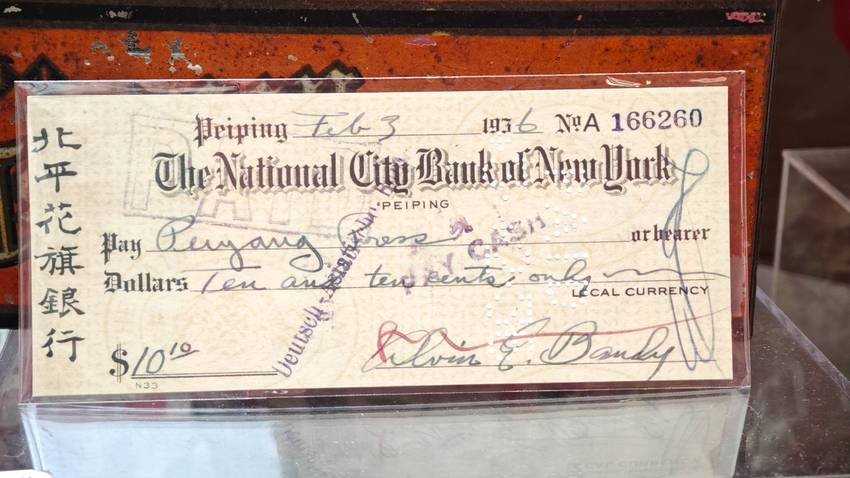 北平花旗銀行
Peiping Feb 3 1936 No A 166260
The National City Bank of New York
PEIPING
Pay Peiyang Press or bearer
Dollars Ten and ten cents only
LEGAL CURRENCY
$10 10
N33
PAID
PAY CASH
Deutsch-Asiatische